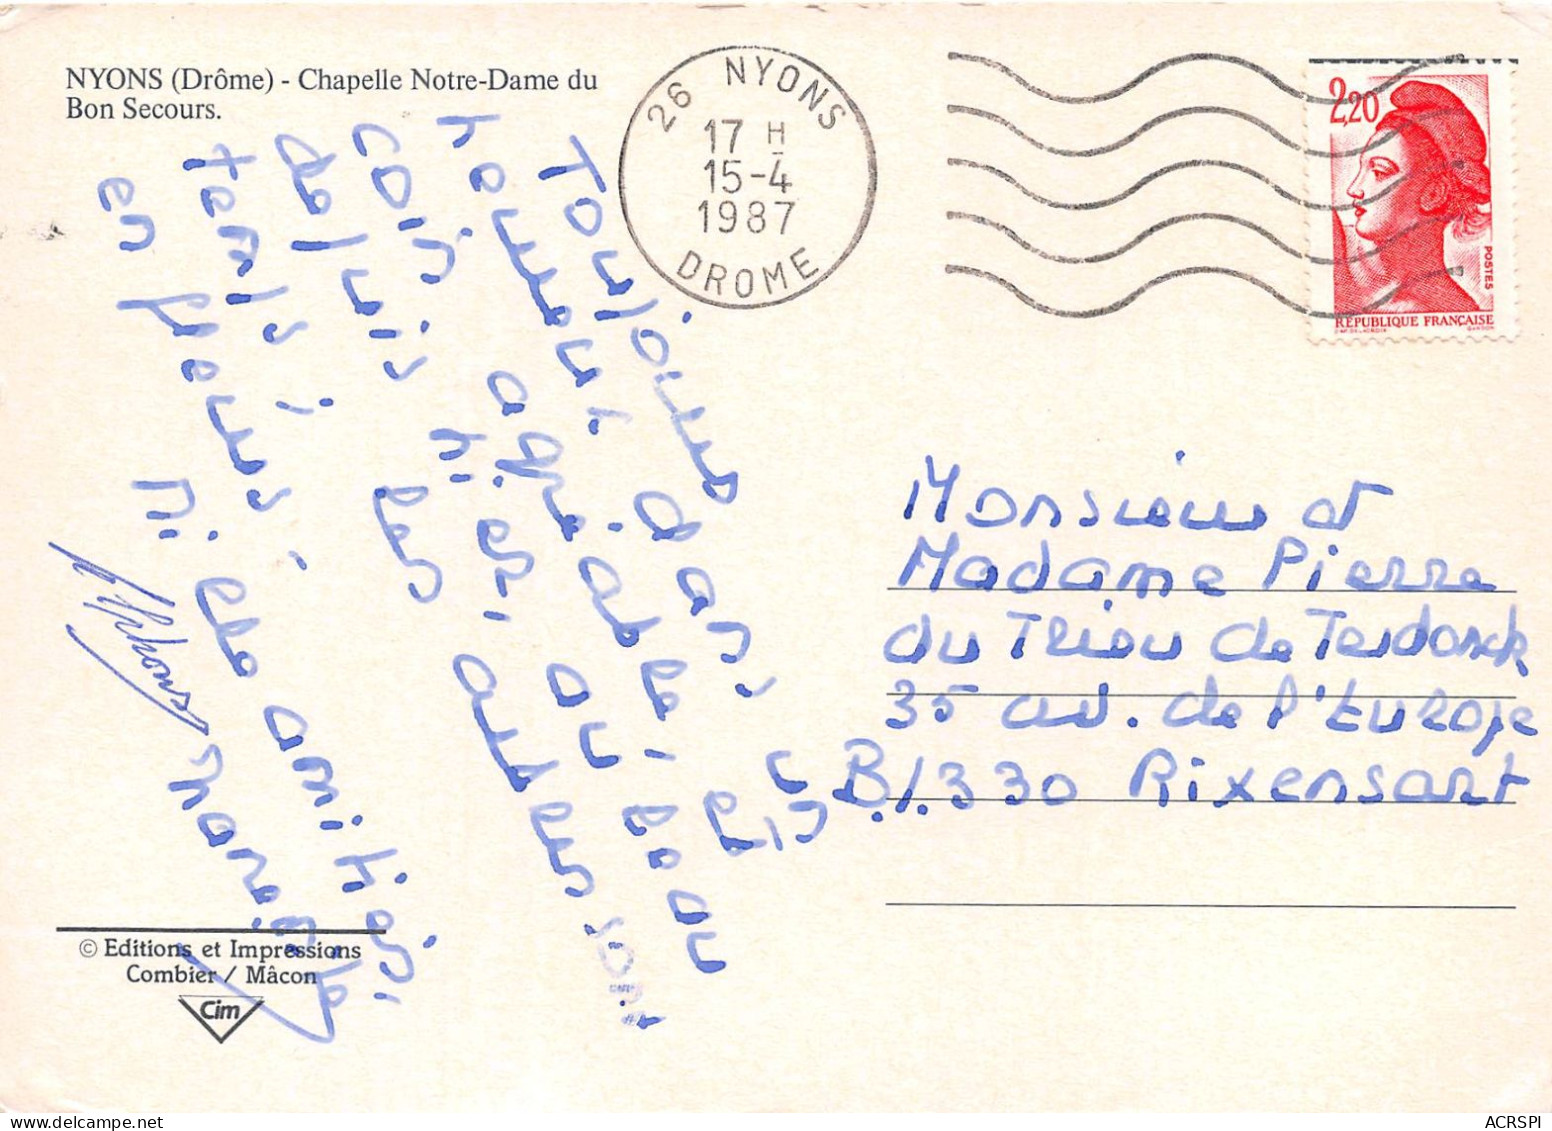 NYONS (Drôme) - Chapelle Notre-Dame du
Bon Secours.
26 NYONS
17 H
15-4
1987
DROME
2,20
POSTES
RÉPUBLIQUE FRANÇAISE
Toujours dans un
nouveau
coin agréable, et
depuis hier, au beau
temps;
les aubes sont
en fleurs!
Mille amitiés,
Alphonse
Monsieur et
Madame Pierre
du Trieu de Terdonck
35 av. de l'Europe
B.1330 Rixensart
© Editions et Impressions
Combier / Mâcon
Cim
ACRSPI